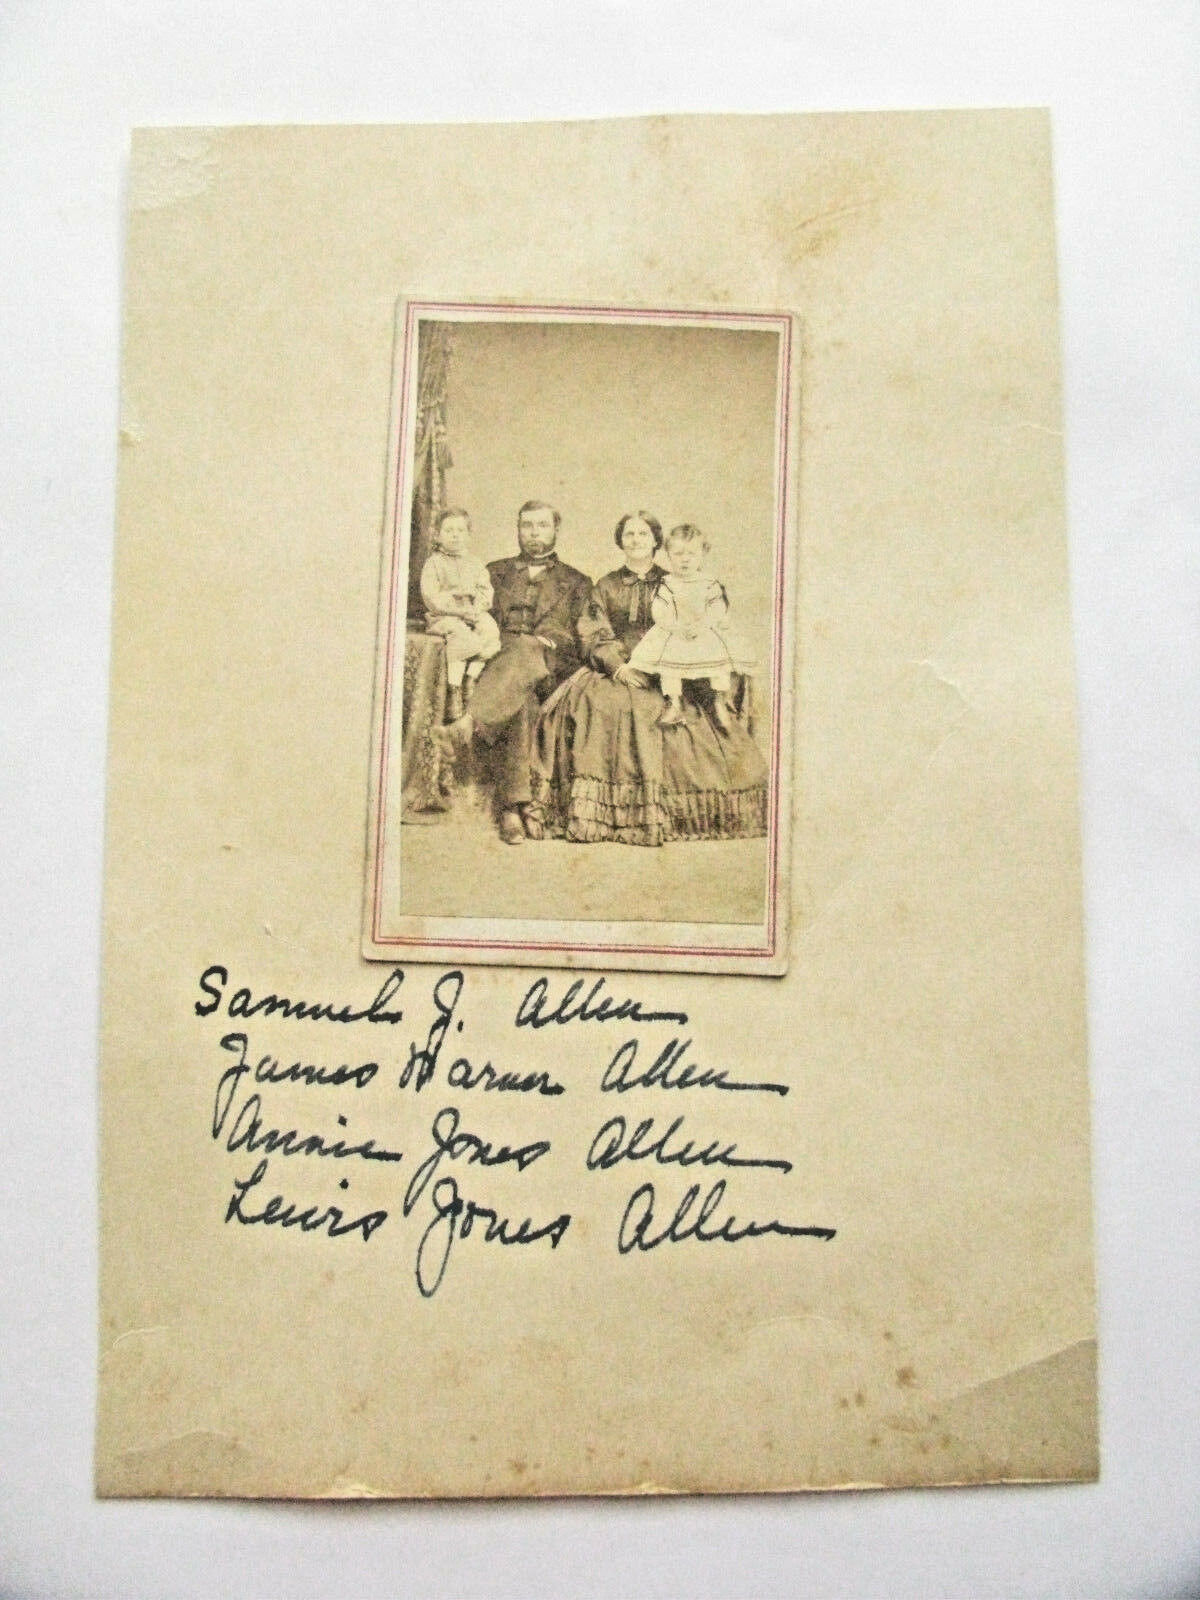 Samuel J. Allen
James Warner Allen
Annie Jones Allen
Lewis Jones Allen